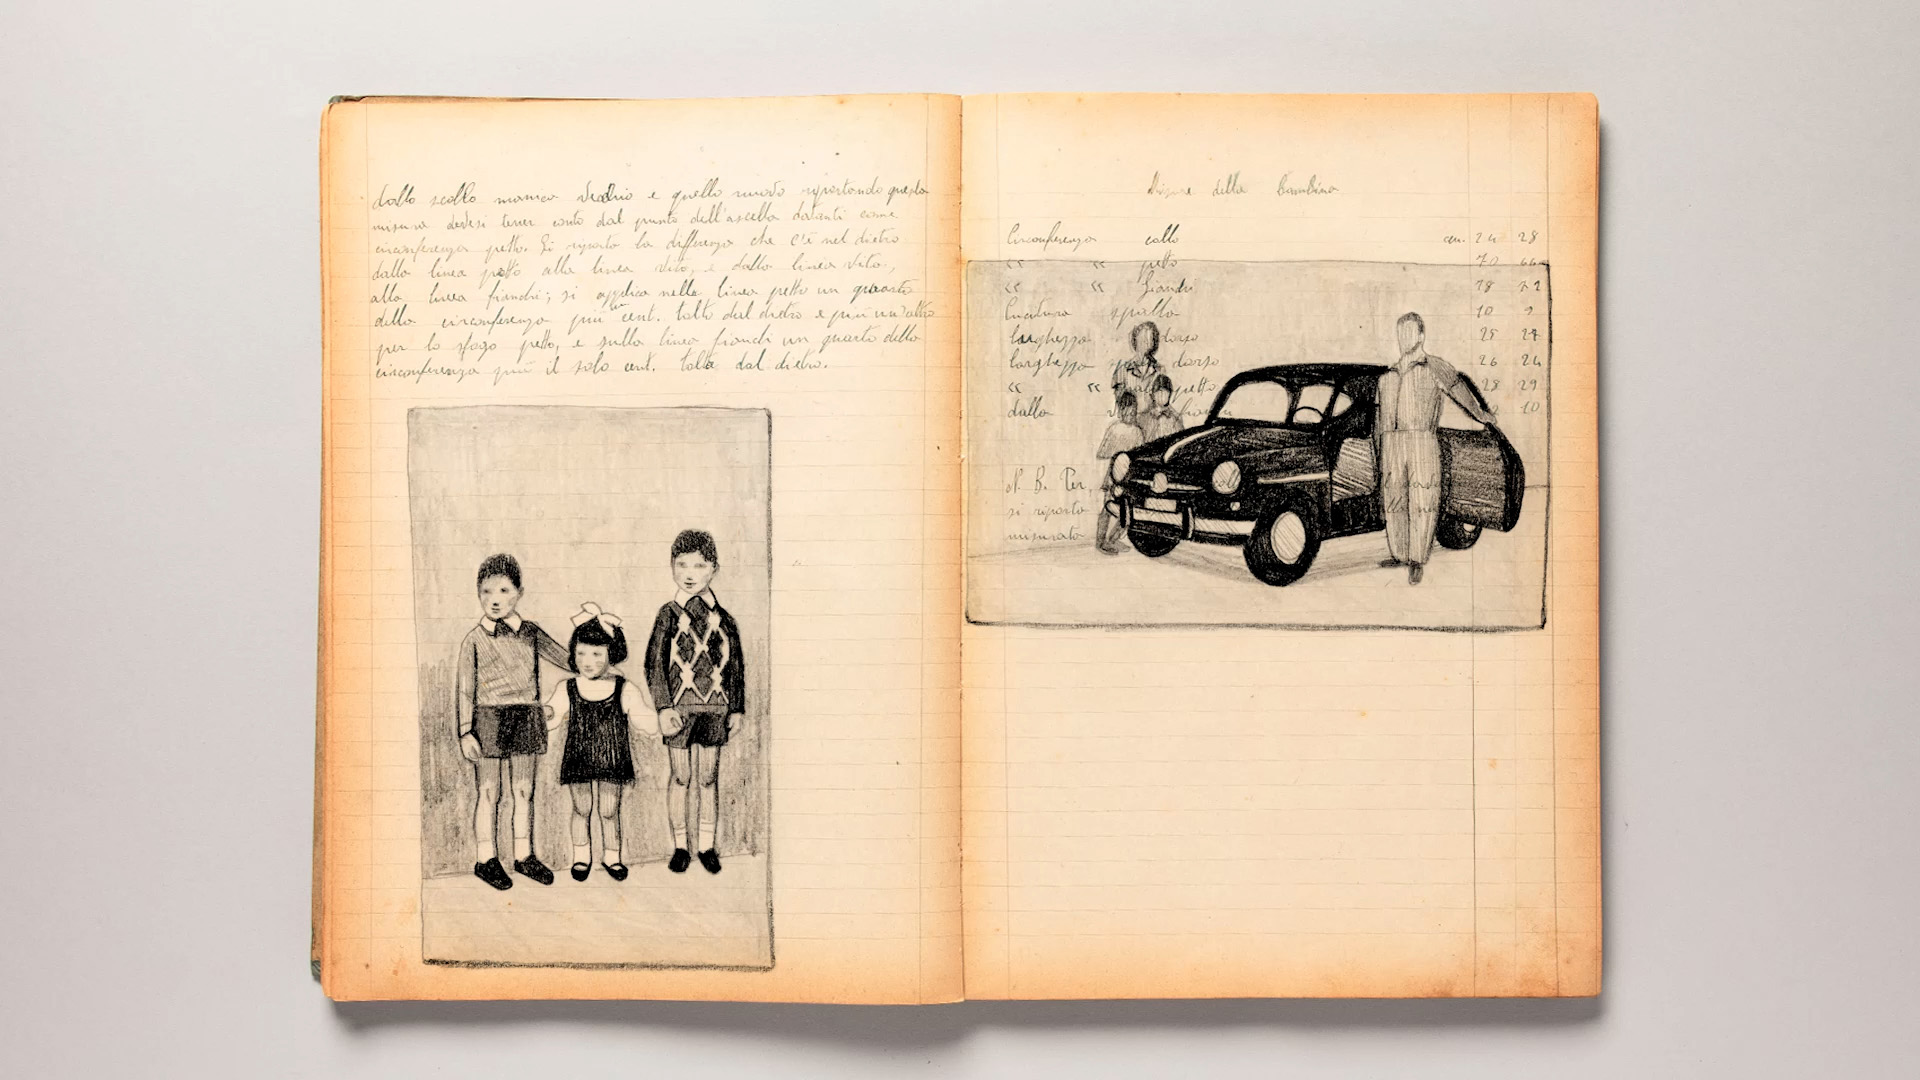 dallo scollo manica dietro e quello nuovo riportando questa
misura devesi tener conto dal punto dell'ascella davanti come
circonferenza petto. Si riporta la differenza che c'è nel dietro
dalla linea petto alla linea vita, e dalla linea vita,
alla linea fianchi; si applica nella linea petto un quarto
della circonferenza più cent. tolto dal dietro e più un altro
per lo sfogo petto, e sulla linea fianchi un quarto della
circonferenza più il solo cent. tolto dal dietro.
Misure della bambina
Circonferenza collo cm. 24 28
“ “ petto 70 66
“ “ fianchi 78 72
spalla 10 9
larghezza dorso 25 27
larghezza dorso 26 24
“ “ petto 28 29
dalla 10
N. B. Per
si riporta
misurato